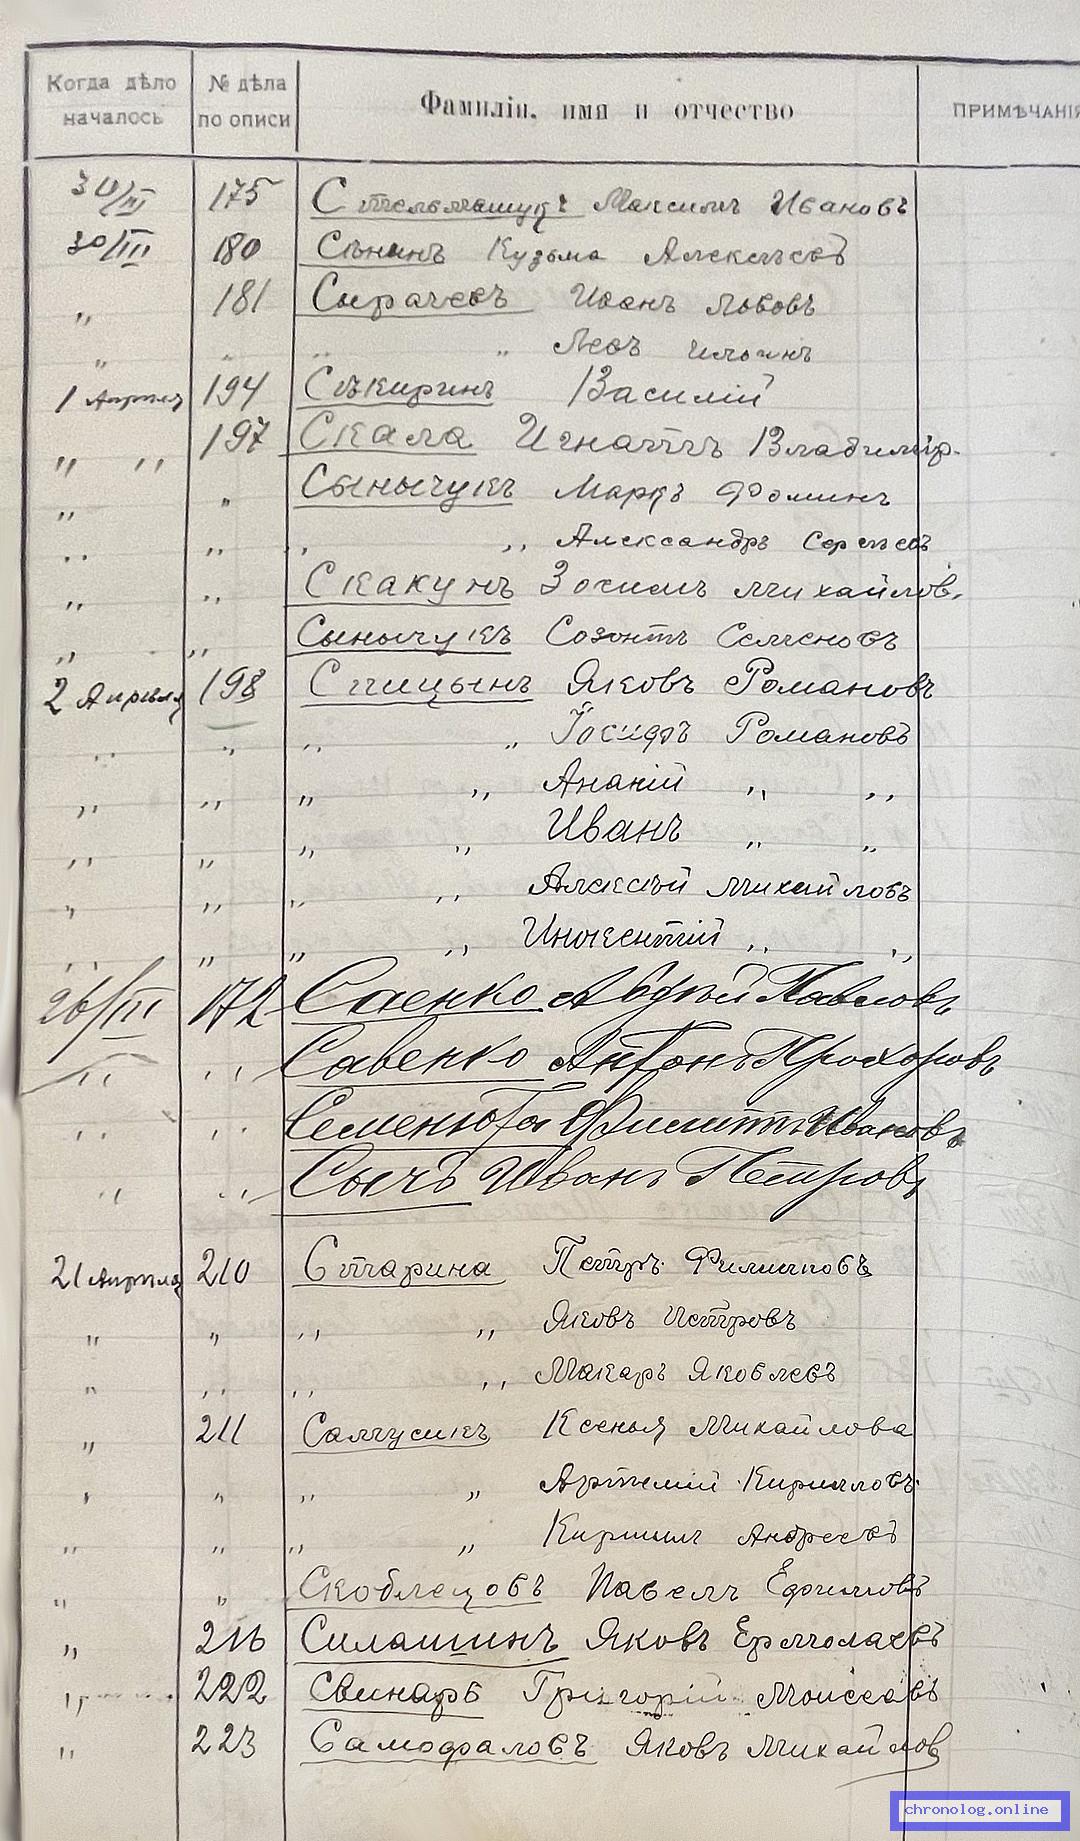 Когда дѣло началось № дѣла по описи Фамиліи, имя и отчество ПРИМѢЧАНІЯ
30/III 175 Стельмащукъ Максимъ Ивановъ
30/III 180 Сѣнинъ Кузьма Алексѣевъ
„ 181 Сырачевъ Иванъ Львовъ
„ „ „ „ Левъ Ильинъ
1 Апрѣля 194 Сѣкиринъ Василій
„ „ 197 Скала Игнатъ Владимір.
„ „ Сынычукъ Маркъ Фоминъ
„ „ „ „ Александръ Сергѣевъ
„ „ Скакунъ Зосимъ Михайлов.
„ „ Сынычукъ Созонтъ Семеновъ
2 Апрѣля 198 Спицынъ Яковъ Романовъ
„ „ „ „ Іосифъ Романовъ
„ „ „ „ Ананій „ „
„ „ „ „ Иванъ „ „
„ „ „ „ Алексѣй Михайловъ
„ „ „ „ Инокентій „ „
26/III 172 Саенко Авдѣй Павловъ
„ „ Савенко Антонъ Прохоровъ
„ „ Семенюта Филиппъ Ивановъ
„ „ Сычъ Иванъ Петровъ
21 Апрѣля 210 Старина Петръ Филипповъ
„ „ „ „ Яковъ Петровъ
„ „ „ „ Макаръ Яковлевъ
„ 211 Самусикъ Ксенья Михайлова
„ „ „ „ Артемій Кирилловъ
„ „ „ „ Кирилл Андреевъ
„ „ Скоблецовъ Павелъ Ефимовъ
„ 216 Силашинъ Яковъ Ермолаевъ
„ 222 Свинарь Григорій Моисеевъ
„ 223 Самофаловъ Яковъ Михайлов
chronolog.online